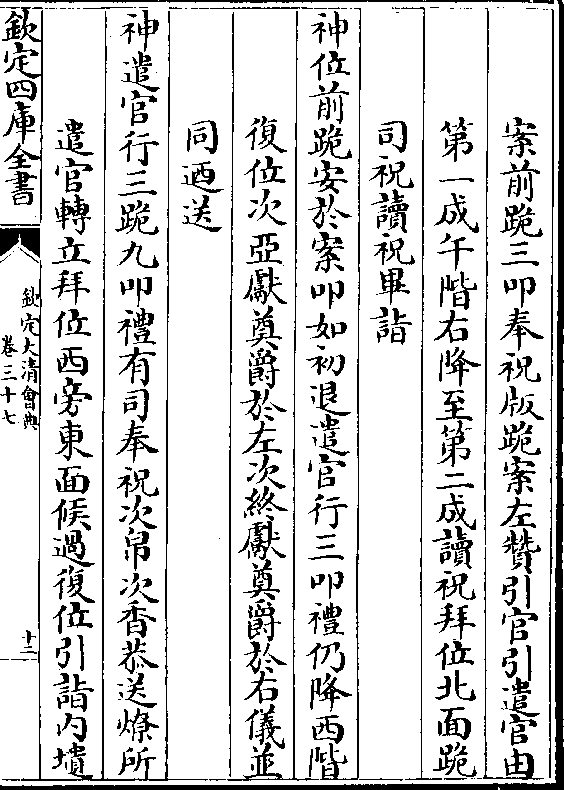 案前跪三叩奉祝版跪案左贊引官引遣官由
第一成午階右降至第二成讀祝拜位北面跪
司祝讀祝畢詣
神位前跪安於案叩如初退遣官行三叩禮仍降西階
復位次亞獻奠爵於左次終獻奠爵於右儀並
同迺送
神遣官行三跪九叩禮有司奉祝次帛次香恭送燎所
遣官轉立拜位西旁東面候過復位引詣内壝
欽定四庫全書
欽定大清會典
卷三十七
十二